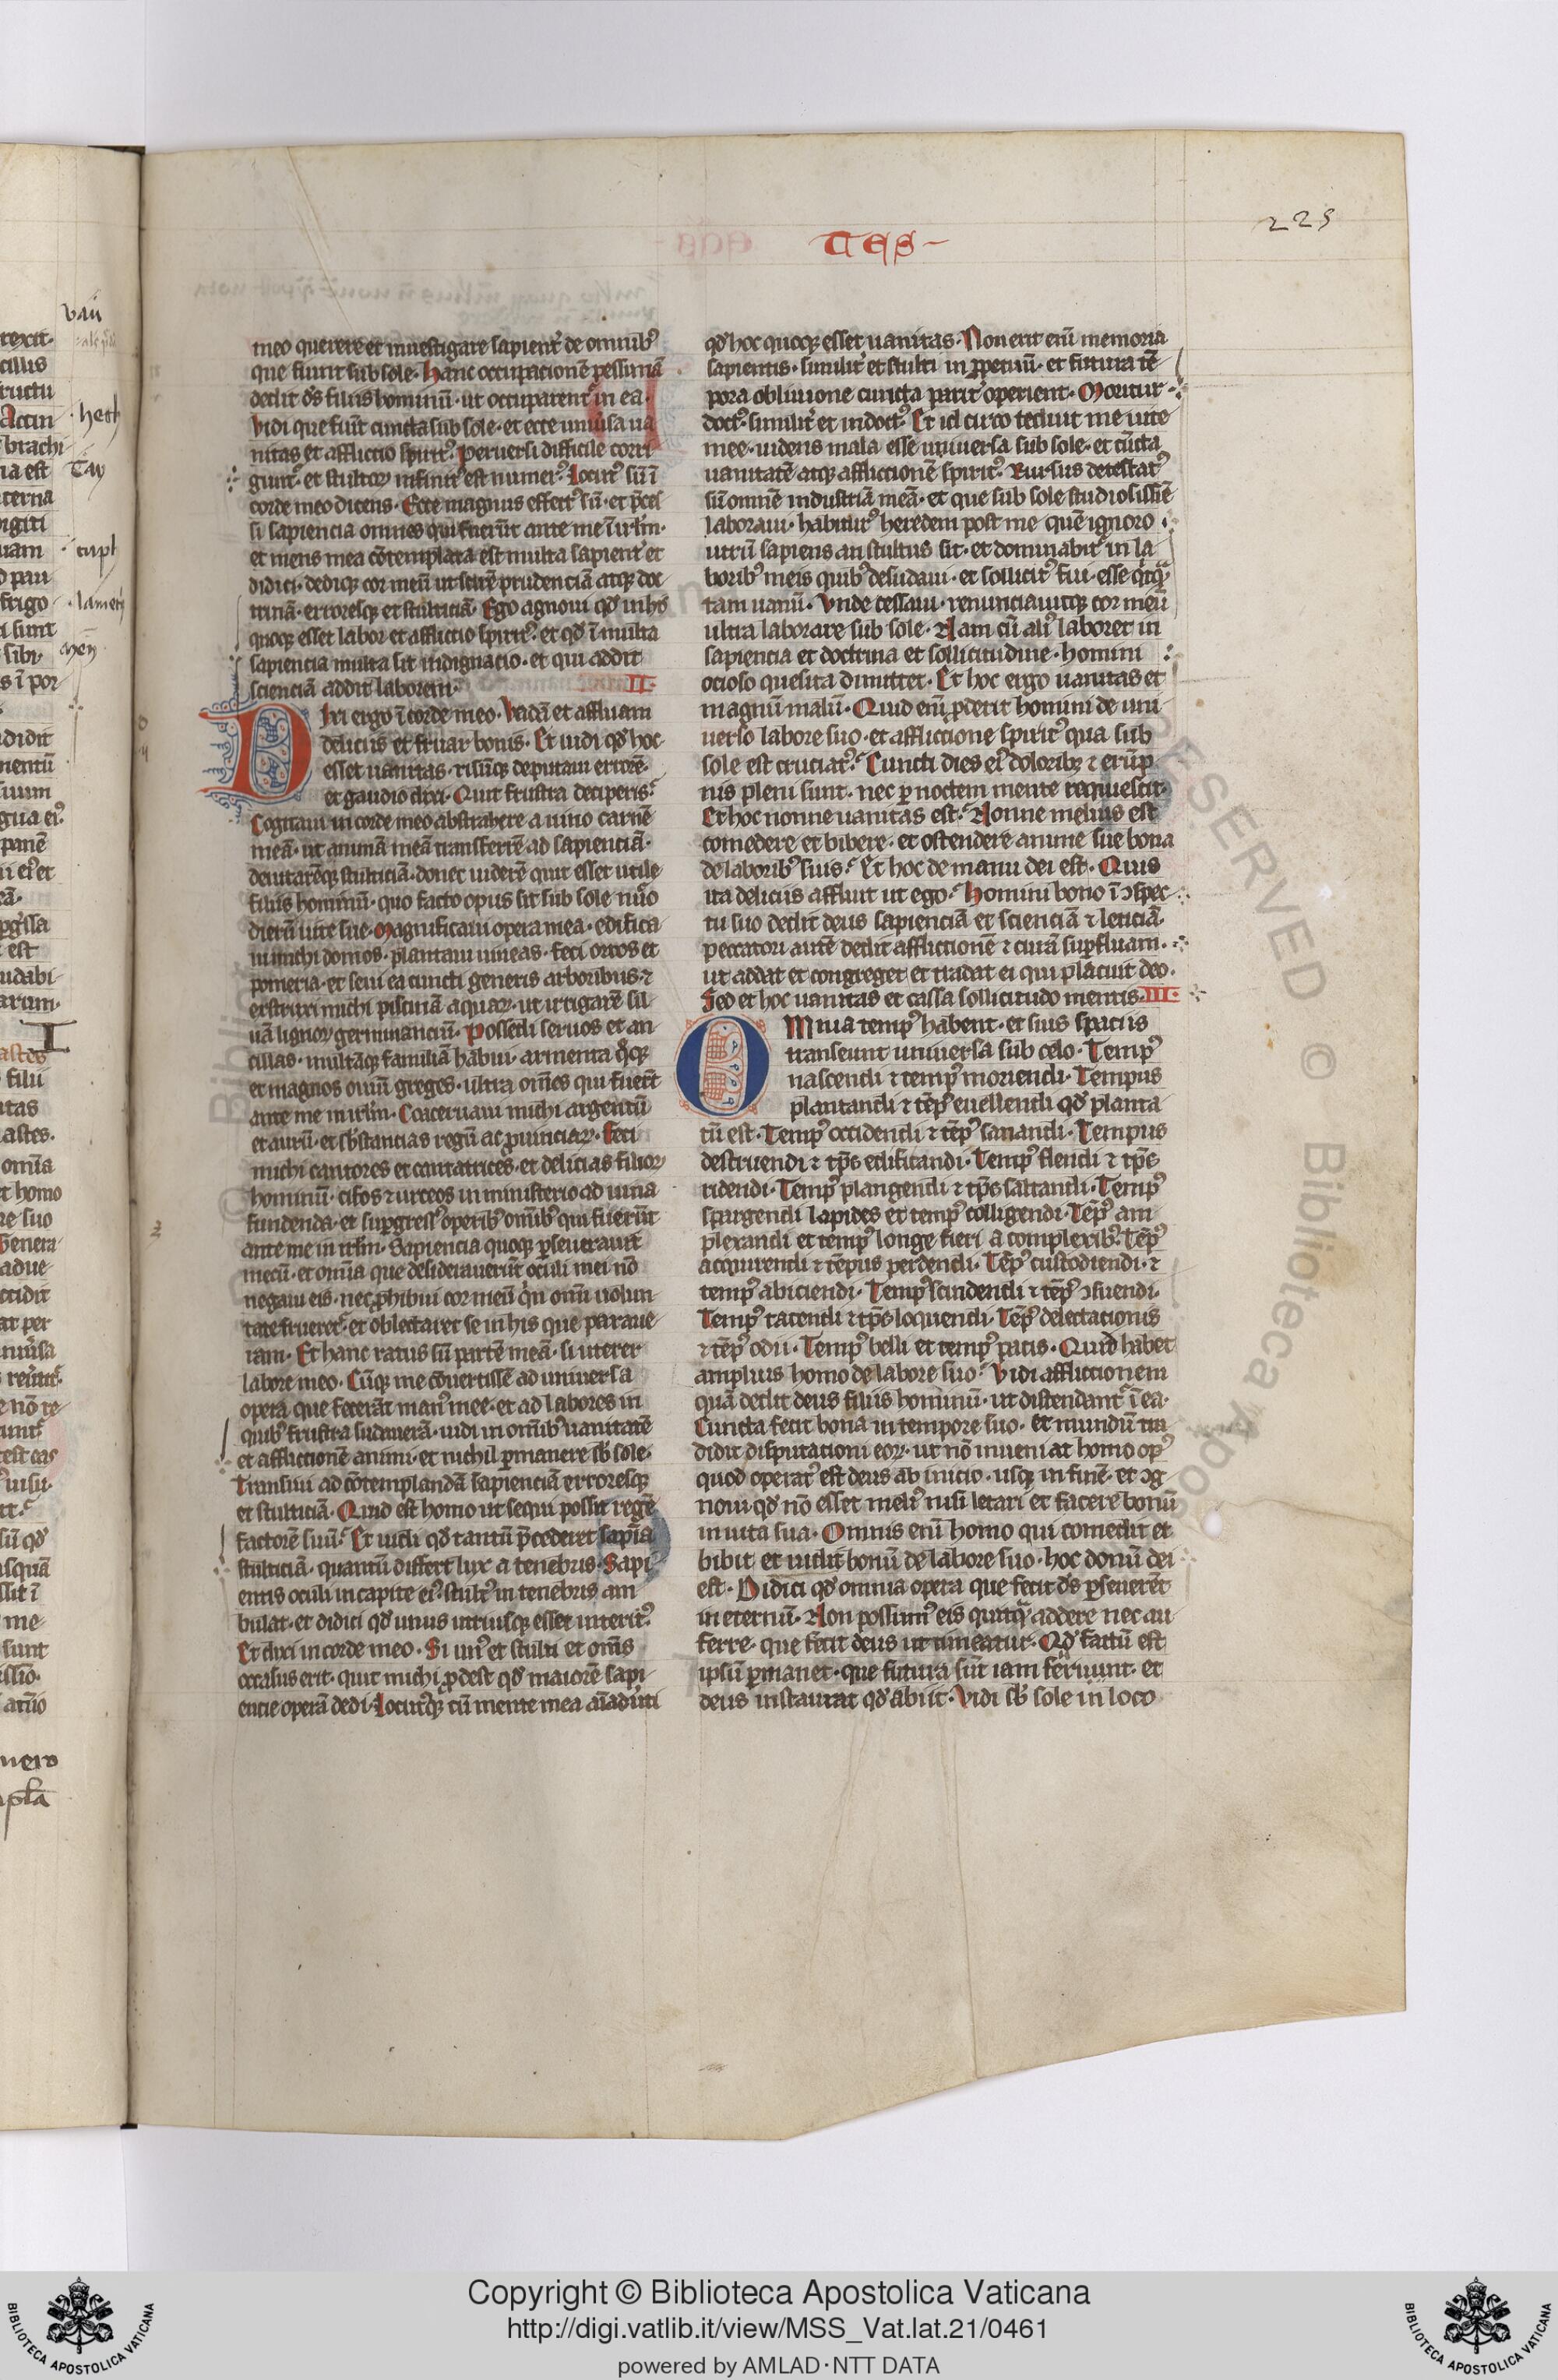 TES
225
meo querere et inuestigare sapient᷑ de omnibꝰ
que fiunt sub sole · Hanc occupacionē pessimā
dedit dꝰs filiis hominū · ut occuparent᷑ in ea ·
Vidi que fiūt cuncta sub sole · et ecce uniūsa ua
nitas et afflictio spiritꝰ · Peruersi difficile corri
gunt᷑ · et stultoꝝ infinitꝰ est numerꝰ · Locutꝰ sū ī
corde meo dicens · Ecce magnus effectꝰ sū · et p̄ces
si sapiencia omnes qui fuerūt ante me ī irlm̄ ·
et mens mea cōtemplata est multa sapient᷑ et
didici · dediqꝫ cor meū ut scirē prudenciā atqꝫ doc
trinā · erroresqꝫ et stulticiā · Ego agnoui qd̓ in hiꝰ
quoqꝫ esset labor et afflictio spiritꝰ · et qd̓ ī multa
sapiencia multa sit indignacio · et qui addit
scienciā addit laborem · II ·
Dixi ergo ī corde meo · Vadā et affluam
deliciis et fruar bonis · Et uidi qd̓ hoc
esset uanitas · risūqꝫ deputaui errorē ·
et gaudio dixi · Quit frustra deciperis ·
Cogitaui in corde meo abstrahere a uino carnē
meā · ut animā meā transferrē ad sapienciā ·
deuitarēqꝫ stulticiā · donec uiderē quit esset utile
filiis hominū · quo facto opus sit sub sole nūo
dierū uite sue · Magnificaui opera mea · edifica
ui michi domos · plantaui uineas · feci ortos et
pomeria · et seui ea cuncti generis arboribus · ⁊
exstruxi michi piscinā aquaꝝ · ut irrigarē sil
uā lignoꝝ germinanciū · Possedi seruos et an
cillas · multāqꝫ familiā habui · armenta q̊qꝫ
et magnos ouiū greges · ultra om̄es qui fuerūt
ante me in irlm̄ · Coaceruaui michi argentū
et aurū · et sb̄stancias regū ac ꝓuinciaꝝ · Feci
michi cantores et cantatrices · et delicias filioꝝ
hominū · cifos ⁊ urceos in ministerio ad uina
fundenda · et suꝑgressꝰ operibꝰ om̄ibꝰ qui fuerūt
ante me in irlm̄ · Sapiencia quoqꝫ ꝑseuerauit
mecū · et omīa que desiderauerūt oculi mei nō
negaui eis · nec ꝓhibui cor meū quin omī uolun
tate frueret᷑ · et oblectaret se in his que paraue
ram · Et hanc ratus sū partē meā · si uterer
labore meo · Cūqꝫ me cōuertissē ad uniuersa
opera que fecerāt manꝰ mee · et ad labores in
quibꝰ frustra sudauerā · uidi in om̄ibꝰ uanitatē
et afflictionē animi · et nichil ꝑmanere sb̄ sole ·
Transiui ad cōtemplandā sapienciā erroresqꝫ
et stulticiā · Quid est homo ut sequi possit regē
factorē suū · Et uidi qd̓ tantū p̄cederet sapīa
stulticiā · quantū differt lux a tenebris · Sapi
entis oculi in capite eiꝰ · stultꝰ in tenebris am
bulat · et didici qd̓ unus utriusqꝫ esset interitꝰ ·
Et dixi in corde meo · Si unꝰ et stulti et meꝰ
occasus erit · quit michi ꝓdest qd̓ maiorē sapi
encie operā dedi · Locutꝰqꝫ cū mente mea aīaduīti
qd̓ hoc quoqꝫ esset uanitas · Non erit enī memoria
sapientis · similit᷑ et stulti in ꝑpetuū · et futura tē
pora obliuione cuncta parit᷑ operient · Moritur
doctꝰ · similit᷑ et indoctꝰ · Et id circo teduit me uite
mee · uidens mala esse uniuersa sub sole · et cūcta
uanitatē atqꝫ afflictionē spiritꝰ · Rursus detestatꝰ
sū omnē industriā meā · et que sub sole studiosissīe
laboraui · habiturꝰ heredem post me quē ignoro
utrū sapiens an stultus sit · et dominabit᷑ in la
boribꝰ meis quibꝰ desudaui · et sollicitꝰ fui · esse qͥcqͣ
tam uanū · Vnde cessaui · renunciauitqꝫ cor meū
ultra laborare sub sole · Nam cū aliꝰ laboret in
sapiencia et doctrina et sollicitudine · homini
ocioso quesita dimittet · Et hoc ergo uanitas et
magnū malū · Quid enī ꝓderit homini de uni
uerso labore suo · et afflictione spiritꝰ qua sub
sole est cruciatꝰ · Cuncti dies eiꝰ doloribꝫ ⁊ erūp
nis pleni sunt · nec ꝑ noctem mente requiescit ·
Et hoc nonne uanitas est · Nonne melius est
comedere et bibere · et ostendere anime sue bona
de laboribꝰ suis · Et hoc de manu dei est · Quis
ita deliciis affluit ut ego · Homini bono ī ꝯspec
tu suo dedit deus sapienciā et scienciā ⁊ leticiā ·
peccatori autē dedit afflictionē ⁊ curā suꝑfluam ·
ut addat et congreget et tradat ei qui placuit deo ·
Sed et hoc uanitas et cassa sollicitudo mentis · III ·
OMnia tempꝰ habent · et suis spaciis
transeunt uniuersa sub celo · Tempꝰ
nascendi ⁊ tempꝰ moriendi · Tempus
plantandi ⁊ tēpꝰ euellendi qd̓ planta
tū est · Tempꝰ occidendi ⁊ tēpꝰ sanandi · Tempus
destruendi ⁊ tp̄s edificandi · Tempꝰ flendi ⁊ tp̄s
ridendi · Tempꝰ plangendi ⁊ tp̄s saltandi · Tempꝰ
spargendi lapides et tempꝰ colligendi · Tēpꝰ am
plexandi et tempꝰ longe fieri a complexibꝰ · Tēpꝰ
acquirendi ⁊ tēpus perdendi · Tēpꝰ custodiendi · ⁊
tempꝰ abiciendi · Tempꝰ scindendi ⁊ tēpꝰ ꝯsuendi ·
Tempꝰ tacendi ⁊ tp̄s loquendi · Tēpꝰ delectacionis
⁊ tēpꝰ odii · Tempꝰ belli et tempꝰ pacis · Quid habet
amplius homo de labore suo · Vidi afflictionem
quā dedit deus filiis hominū · ut distendant᷑ ī ea ·
Cuncta fecit bona in tempore suo · et mundū tra
didit disputationi eoꝝ · ut nō inueniat homo opꝰ
quod operatꝰ est deus ab inicio · usqꝫ in finē · et ꝯg
noui qd̓ nō esset meliꝰ nisi letari et facere bonū
in uita sua · Omnis enī homo qui comedit et
bibit et uidit bonū de labore suo · hoc donū dei
est · Didici qd̓ omnia opera que fecit dꝰs ꝑseuerēt
in eternū · Non possumꝰ eis quitqͣ addere nec au
ferre · que fecit deus ut timeatur · Qd̓ factū est
ipsū ꝑmanet · que futura sūt iam fuerunt · et
deus instaurat qd̓ abiit · Vidi sb̄ sole in loco
Copyright © Biblioteca Apostolica Vaticana
http://digi.vatlib.it/view/MSS_Vat.lat.21/0461
powered by AMLAD·NTT DATA
BIBLIOTECA APOSTOLICA VATICANA
BIBLIOTECA APOSTOLICA VATICANA